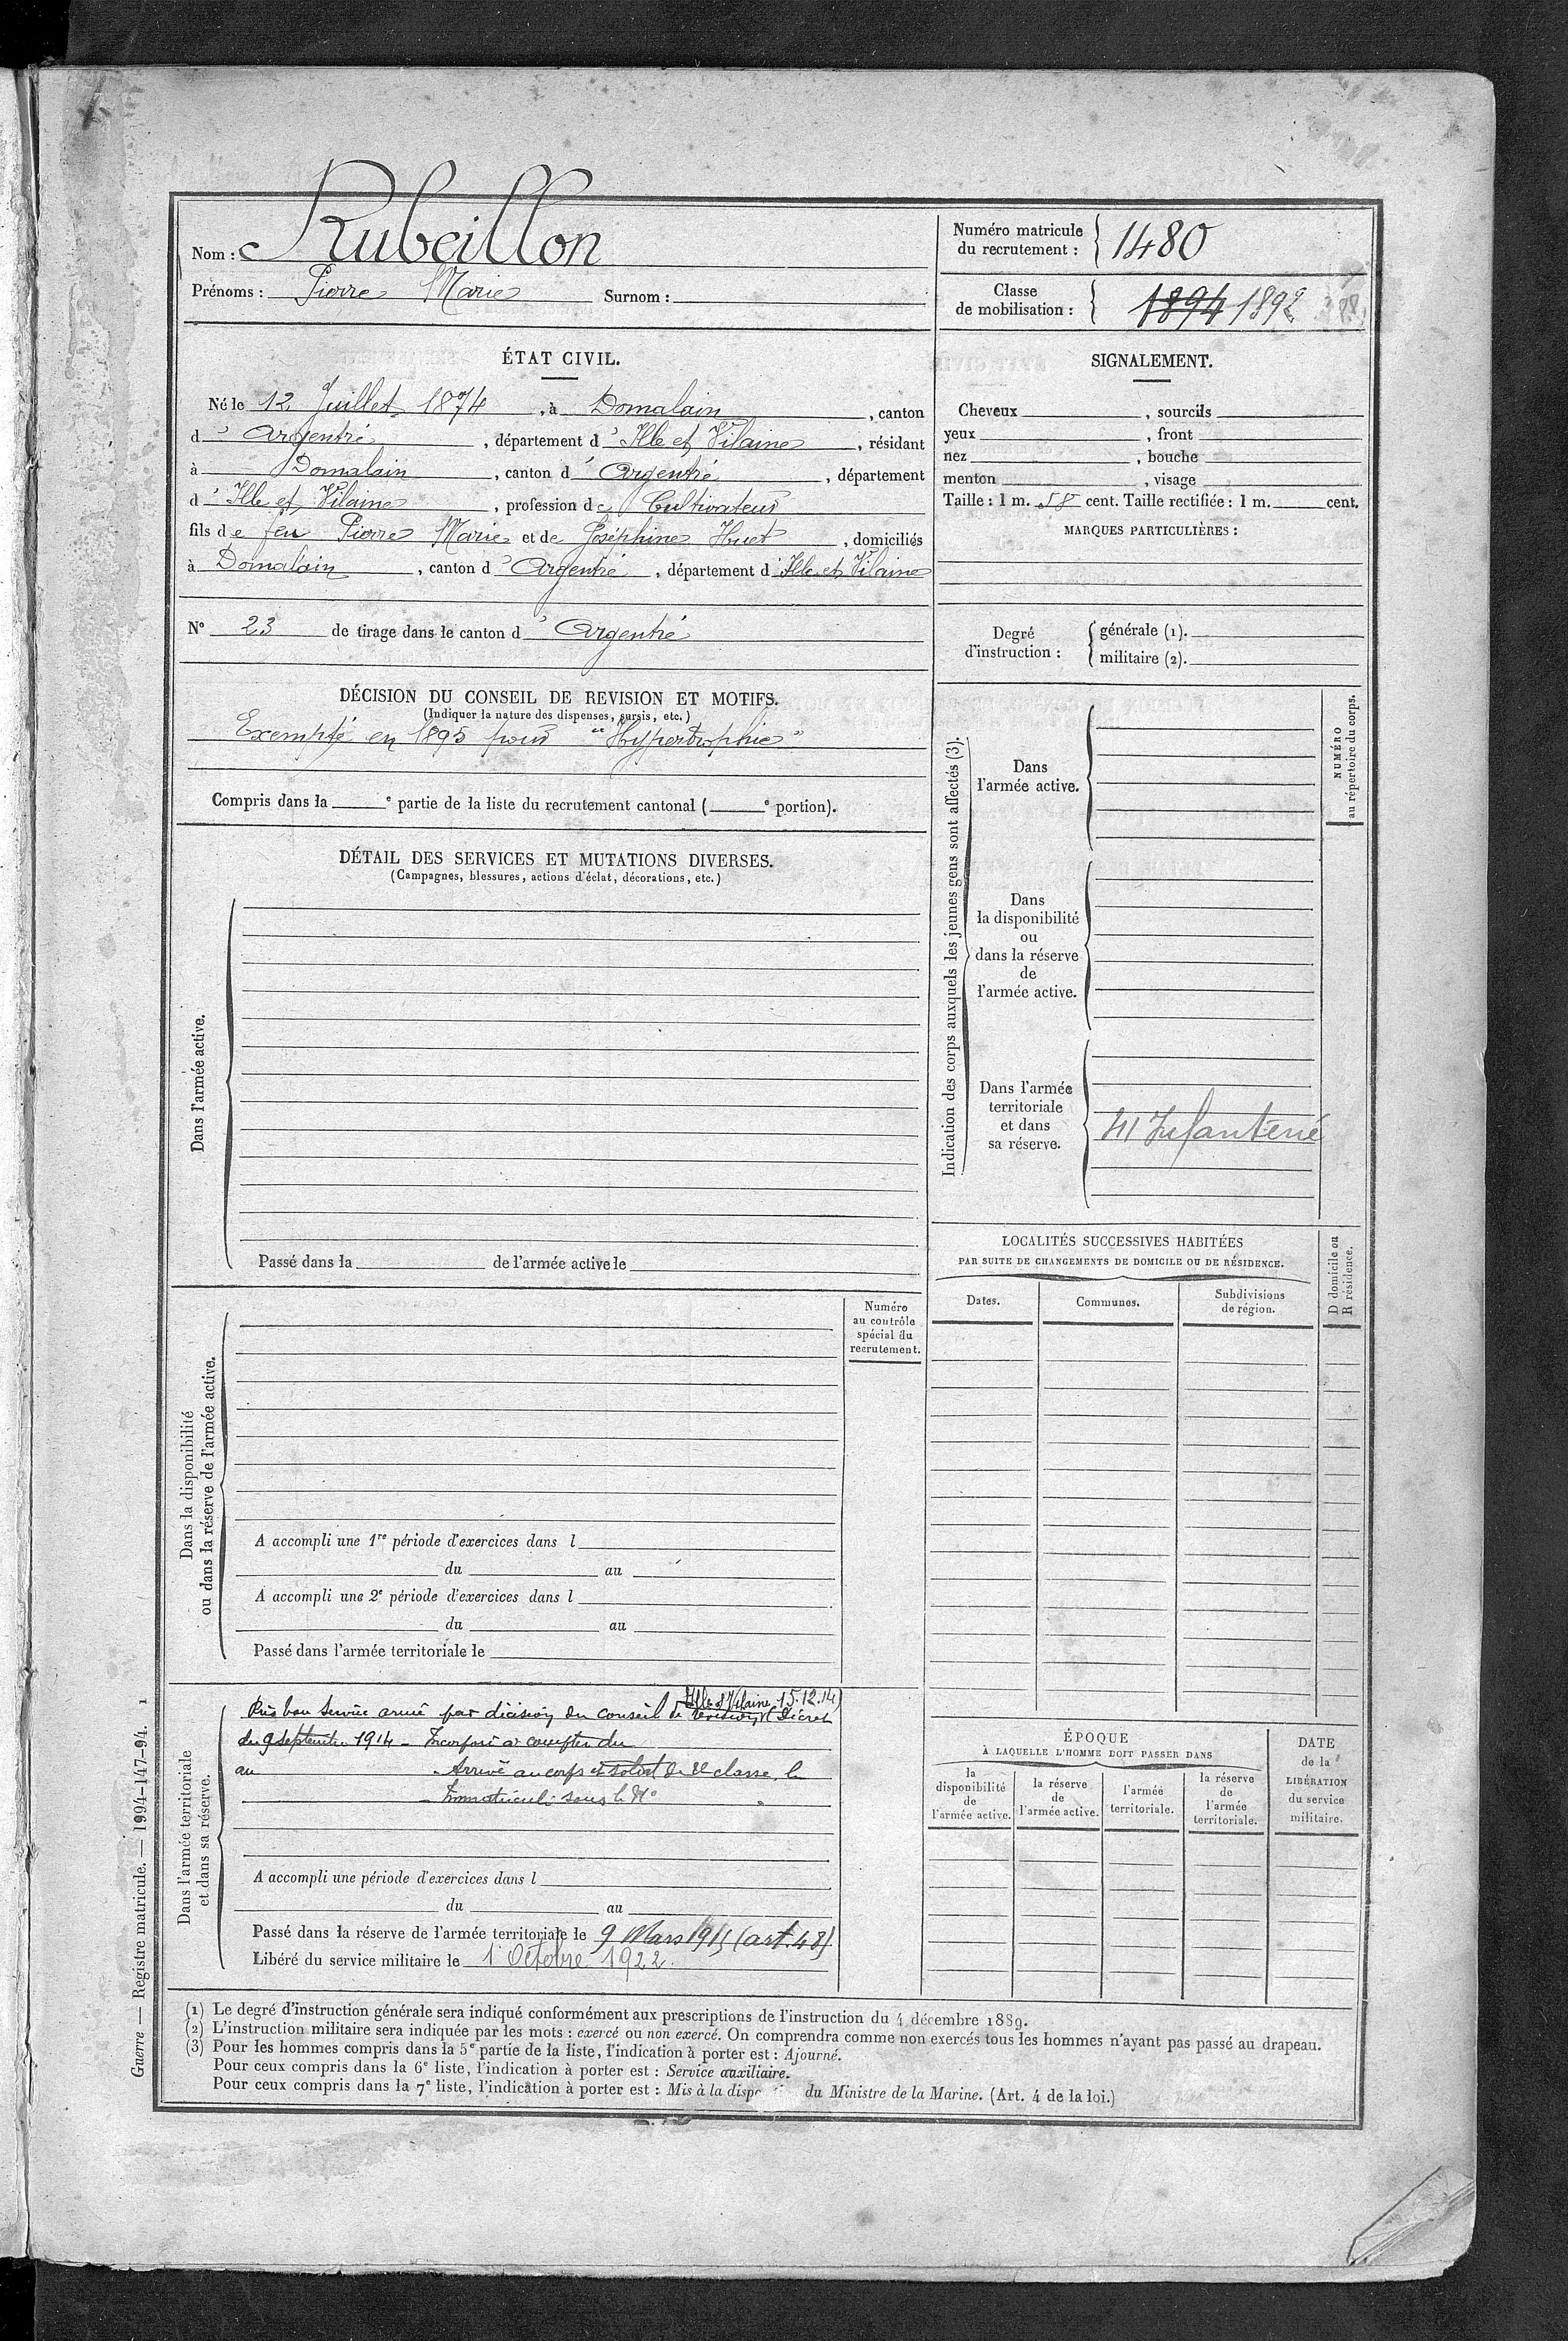 Nom : Rubeillon
Prénoms : Pierre Marie Surnom :
Numéro matricule
du recrutement : 1480
Classe
de mobilisation : 1894 1892
ÉTAT CIVIL.
Né le 12 Juillet 1874, à Domalain, canton
d' Argentré, département d' Ille et Vilaine, résidant
à Domalain, canton d' Argentré, département
d' Ille et Vilaine, profession de Cultivateur
fils de feu Pierre Marie et de Joséphine Huet, domiciliés
à Domalain, canton d' Argentré, département d' Ille et Vilaine
N° 23 de tirage dans le canton d' Argentré
SIGNALEMENT.
Cheveux , sourcils
yeux , front
nez , bouche
menton , visage
Taille : 1 m. 58 cent. Taille rectifiée : 1 m. cent.
MARQUES PARTICULIÈRES :
Degré
d'instruction :
générale (1).
militaire (2).
DÉCISION DU CONSEIL DE REVISION ET MOTIFS.
(Indiquer la nature des dispenses, sursis, etc.)
Exempté en 1895 pour "Hypertrophie"
Compris dans la e partie de la liste du recrutement cantonal ( e portion).
DÉTAIL DES SERVICES ET MUTATIONS DIVERSES.
(Campagnes, blessures, actions d'éclat, décorations, etc.)
Dans l'armée active.
Passé dans la de l'armée active le
Indication des corps auxquels les jeunes gens sont affectés (3).
Dans
l'armée active.
Dans
la disponibilité
ou
dans la réserve
de
l'armée active.
Dans l'armée
territoriale
et dans
sa réserve.
41 Infanterie
NUMÉRO
au répertoire du corps.
LOCALITÉS SUCCESSIVES HABITÉES
PAR SUITE DE CHANGEMENTS DE DOMICILE OU DE RÉSIDENCE.
Dates.
Communes.
Subdivisions
de région.
D domicile ou
R résidence.
Dans la disponibilité
ou dans la réserve de l'armée active.
Numéro
au contrôle
spécial du
recrutement.
A accompli une 1re période d'exercices dans l
du au
A accompli une 2e période d'exercices dans l
du au
Passé dans l'armée territoriale le
Dans l'armée territoriale
et dans sa réserve.
Ille et Vilaine 15.12.14)
Pris bon service armé par décision du conseil de revision (Décret
du 9 septembre 1914 - Incorporé à compter du
au - Arrivé au corps et soldat de 2e classe, le
- Immatriculé sous le N°
A accompli une période d'exercices dans l
du au
Passé dans la réserve de l'armée territoriale le 9 Mars 1915 (art. 48)
Libéré du service militaire le 1 Octobre 1922.
ÉPOQUE
À LAQUELLE L'HOMME DOIT PASSER DANS
la
disponibilité
de
l'armée active.
la réserve
de
l'armée active.
l'armée
territoriale.
la réserve
de
l'armée
territoriale.
DATE
de la
LIBÉRATION
du service
militaire.
(1) Le degré d'instruction générale sera indiqué conformément aux prescriptions de l'instruction du 4 décembre 1889.
(2) L'instruction militaire sera indiquée par les mots : exercé ou non exercé. On comprendra comme non exercés tous les hommes n'ayant pas passé au drapeau.
(3) Pour les hommes compris dans la 5e partie de la liste, l'indication à porter est : Ajourné.
Pour ceux compris dans la 6e liste, l'indication à porter est : Service auxiliaire.
Pour ceux compris dans la 7e liste, l'indication à porter est : Mis à la disp du Ministre de la Marine. (Art. 4 de la loi.)
Guerre — Registre matricule. — 1994-147-94. 1